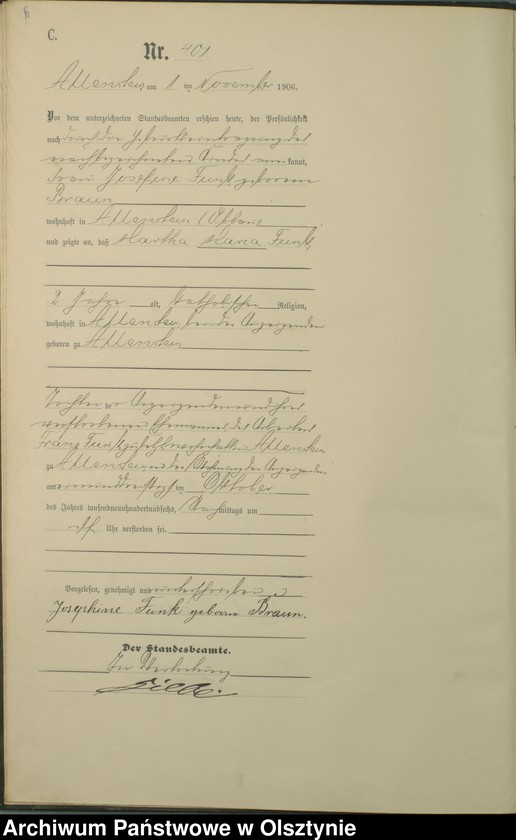 C.
Nr. 401
Allenstein am 1 ten November 1906.
Vor dem unterzeichneten Standesbeamten erschien heute, der Persönlichkeit
nach durch die Geburtseintragung des
nachbezeichneten Kindes anerkannt,
Frau Josefine Funk geborene
Braun
wohnhaft in Allenstein
und zeigte an, daß Martha Maria Funk,
2 Jahre alt, katholischer Religion,
wohnhaft in Allenstein bei der Anzeigenden
geboren zu Allenstein
Tochter der Anzeigenden und ihres
verstorbenen Ehemannes, des Arbeiters
Franz Funk, zuletzt wohnhaft in Allenstein
zu Allenstein in der Wohnung der Anzeigenden
am einunddreißigsten Oktober
des Jahres tausendneunhundertundsechs, Nachmittags um
Uhr verstorben sei.
Vorgelesen, genehmigt und unterschrieben
Josephine Funk geborene Braun.
Der Standesbeamte.
In Vertretung
Archiwum Państwowe w Olsztynie